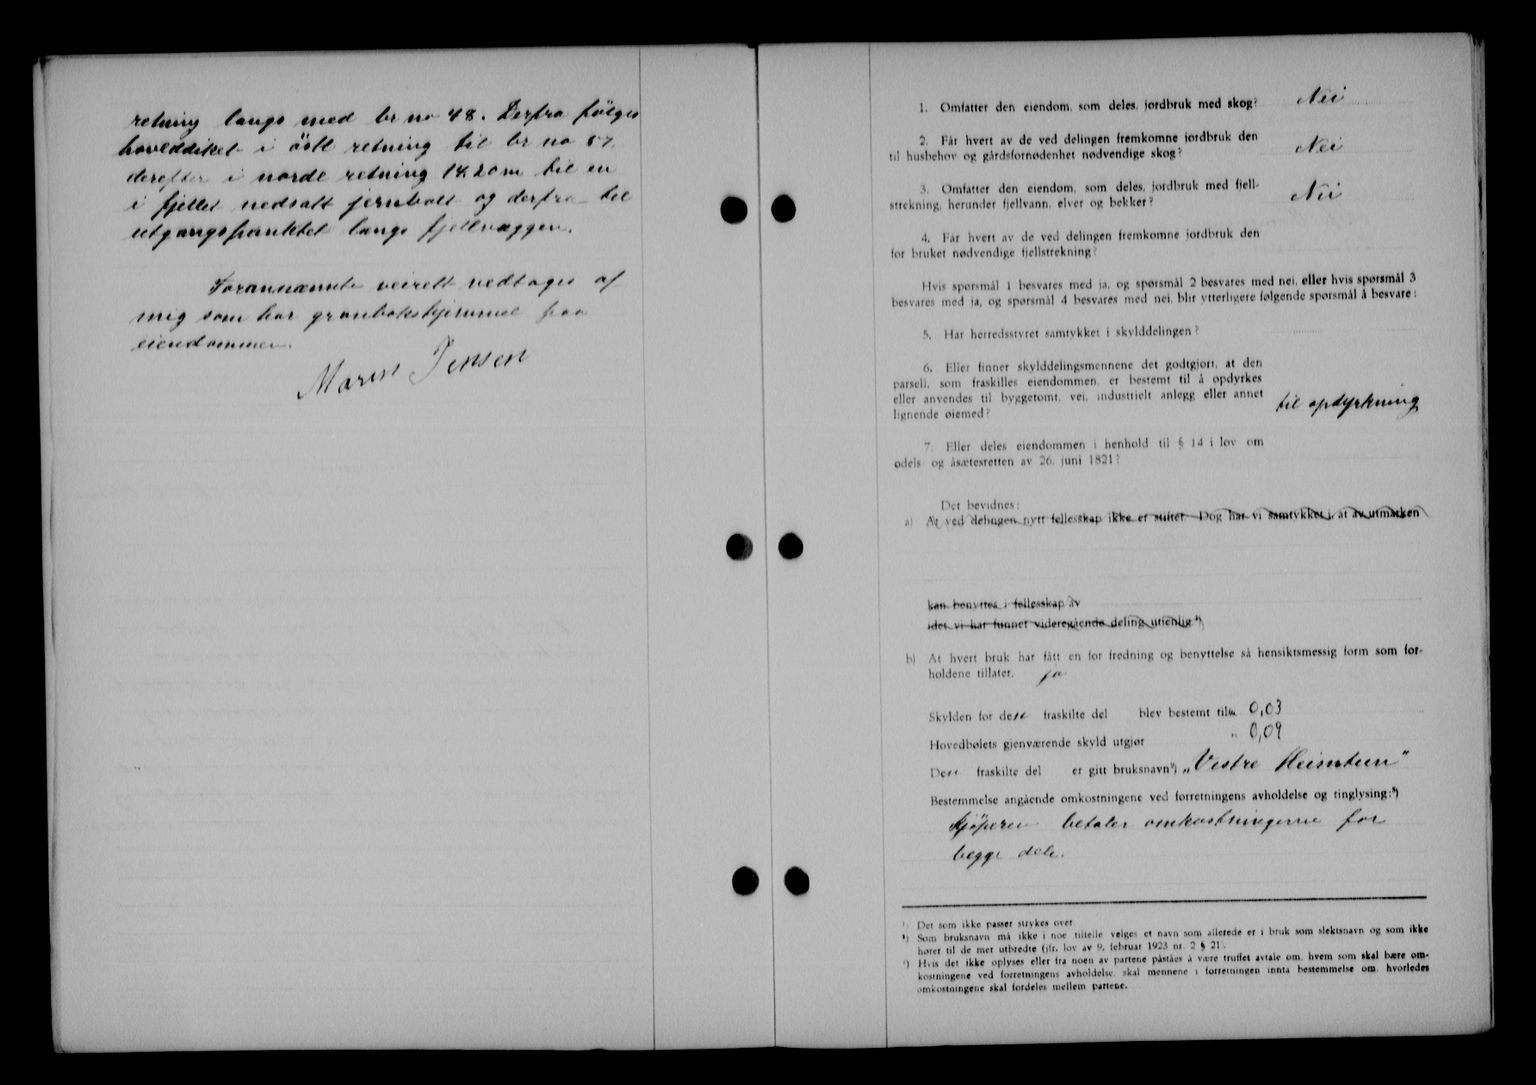 retning langs med br no 48. Derfra følges
hoveddiket i østl retning til br no 57
derefter i nordl retning 14.20m til en
i fjellet nedsatt jernbolt og derfra til
utgangspunktet langs fjellvæggen.
Forannævnte veirett vedtages af
mig som har grunbokshjemmel paa
eiendommen.
Maren Jensen
1. Omfatter den eiendom, som deles, jordbruk med skog? Nei
2. Får hvert av de ved delingen fremkomne jordbruk den
til husbehov og gårdsfornødenhet nødvendige skog? Nei
3. Omfatter den eiendom, som deles, jordbruk med fjell-
strekning, herunder fjellvann, elver og bekker? Nei
4. Får hvert av de ved delingen fremkomne jordbruk den
for bruket nødvendige fjellstrekning?
Hvis spørsmål 1 besvares med ja, og spørsmål 2 besvares med nei, eller hvis spørsmål 3
besvares med ja, og spørsmål 4 besvares med nei, blir ytterligere følgende spørsmål å besvare:
5. Har herredsstyret samtykket i skylddelingen?
6. Eller finner skylddelingsmennene det godtgjort, at den
parsell, som fraskilles eiendommen, er bestemt til å opdyrkes
eller anvendes til byggetomt, vei, industrielt anlegg eller annet
lignende øiemed? til opdyrkning
7. Eller deles eiendommen i henhold til § 14 i lov om
odels- og åsætesretten av 26. juni 1821?
Det bevidnes:
a) At ved delingen nytt fellesskap ikke er stiftet. Dog har vi samtykket i, at av utmarken
kan benyttes i fellesskap av
idet vi har funnet videregående deling utjenlig.¹)
b) At hvert bruk har fått en for fredning og benyttelse så hensiktsmessig form som for-
holdene tillater. ja
Skylden for den fraskilte del blev bestemt til 0,03
Hovedbølets gjenværende skyld utgjør " 0,09
Den fraskilte del er gitt bruksnavn²) „Vestre Heimtun"
Bestemmelse angående omkostningene ved forretningens avholdelse og tinglysing:³)
Kjøperen betaler omkostningerne for
begge dele.
¹) Det som ikke passer strykes over.
²) Som bruksnavn må ikke i noe tilfelle velges et navn som allerede er i bruk som slektsnavn og som ikke
hører til de mer utbredte (jfr. lov av 9. februar 1923 nr. 2 § 21).
³) Hvis det ikke oplyses eller fra noen av partene påståes å være truffet avtale om, hvem som skal bære om-
kostningene ved forretningens avholdelse, skal mennene i forretningen innta bestemmelse om, hvorledes
omkostningene skal fordeles mellem partene.